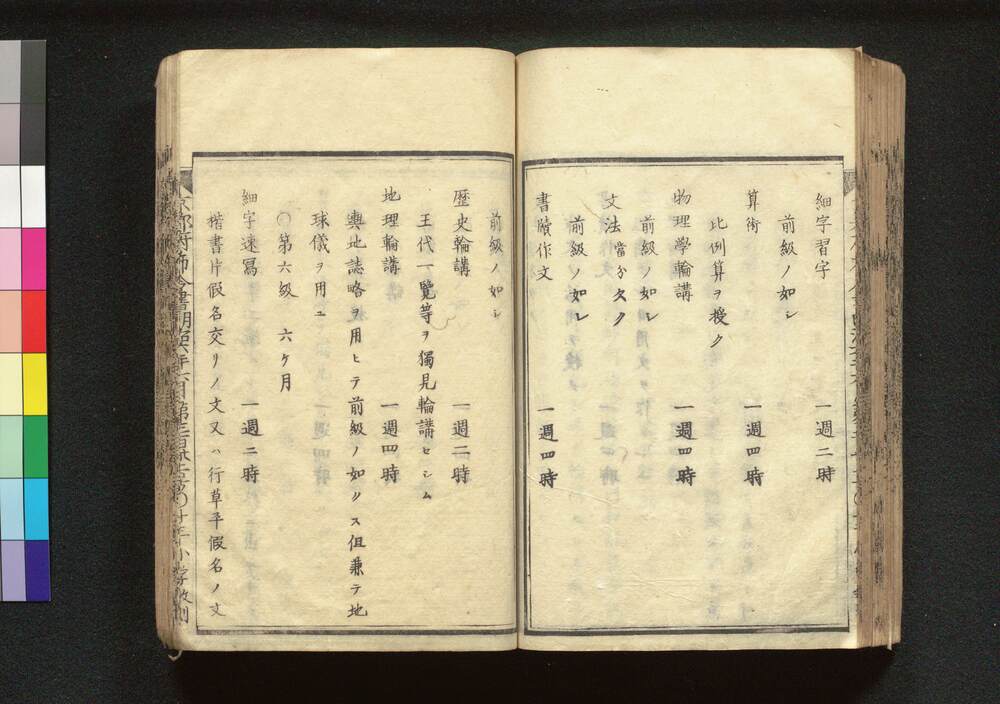 細字習字 一週二時
前級ノ如シ
算術 一週四時
比例算ヲ授ク
物理学輪講 一週四時
前級ノ如シ
文法當分欠ク
前級ノ如シ
書牘作文 一週四時
前級ノ如シ
歴史輪講 一週二時
王代一覧等ヲ獨見輪講セシム
地理輪講 一週四時
輿地誌略ヲ用ヒテ前級ノ如クス但兼テ地
球儀ヲ用ユ
〇第六級 六ケ月
細字速寫 一週二時
楷書片假名交リノ文又ハ行草平假名ノ文